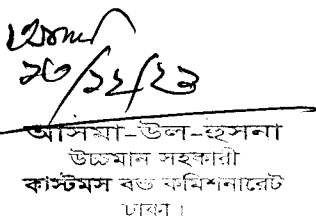 ১৩/১২/২৩
আসমা-উল-হুসনা
উচ্চমান সহকারী
কাস্টমস বন্ড কমিশনারেট
ঢাকা।